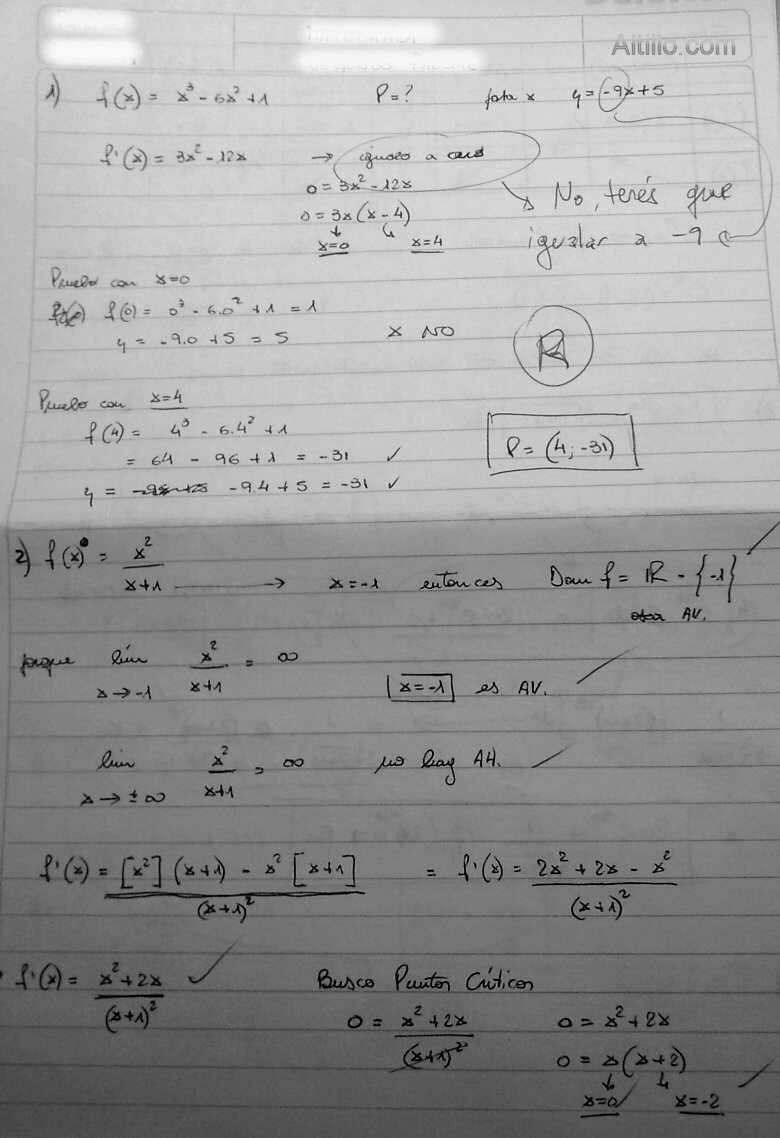 Altillo.com
1) f(x) = x³ - 6x² + 1 P = ? para x y = -9x + 5
f'(x) = 3x² - 12x → igualo a cero
0 = 3x² - 12x
0 = 3x(x - 4)
x=0 x=4
No, tenés que
igualar a -9
Pruebo con x=0
f(0) = 0³ - 6.0² + 1 = 1
y = -9.0 + 5 = 5 x NO
R
Pruebo con x=4
f(4) = 4³ - 6.4² + 1
= 64 - 96 + 1 = -31 ✓
y = -9.4 + 5 = -31 ✓
P = (4; -31)
2) f(x) = x²/(x+1) → x = -1 entonces Dom f = ℝ - {-1}
AV.
porque lim x→-1 x²/(x+1) = ∞ x=-1 es AV.
lim x→±∞ x²/(x+1) = ∞ no hay AH.
f'(x) = [x²](x+1) - x²[x+1] / (x+1)² = f'(x) = 2x² + 2x - x² / (x+1)²
f'(x) = x² + 2x / (x+1)² ✓ Busco Puntos Críticos
0 = x² + 2x / (x+1)² 0 = x² + 2x
0 = x(x+2)
x=0 ✓ x=-2 ✓